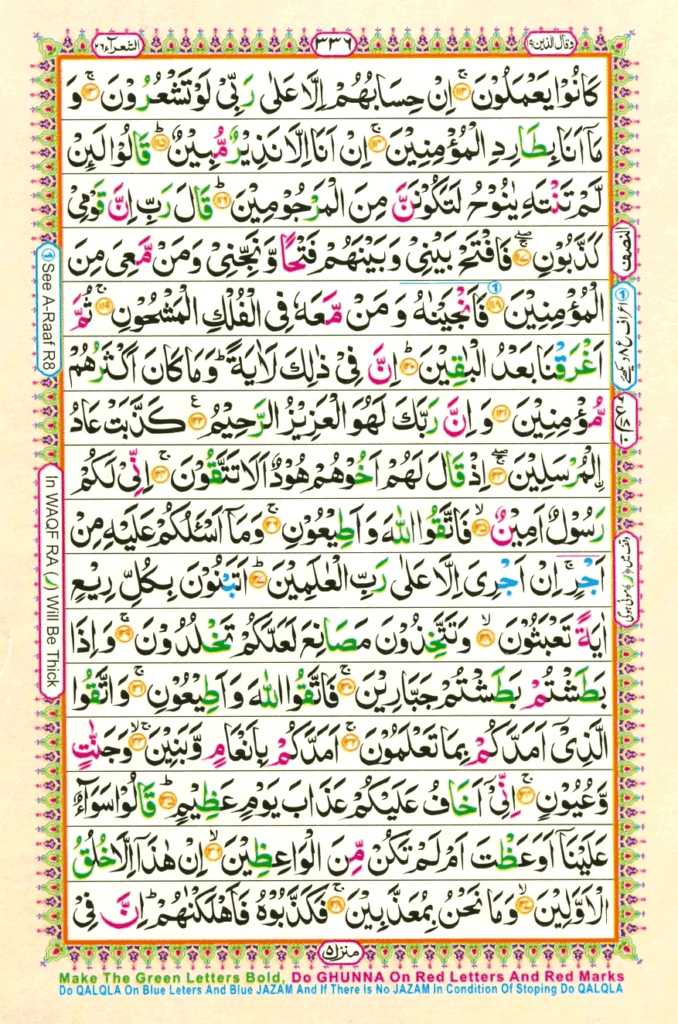 وقال الذین ۹
۳۳۶
الشعرآء ۲۶
كَانُوْا يَعْمَلُوْنَ ۱۱۲ اِنْ حِسَابُهُمْ اِلَّا عَلٰى رَبِّىْ لَوْ تَشْعُرُوْنَ ۱۱۳ وَ
مَاۤ اَنَا بِطَارِدِ الْمُؤْمِنِيْنَ ۱۱۴ اِنْ اَنَا اِلَّا نَذِيْرٌ مُّبِيْنٌ ۱۱۵ قَالُوْا لَئِنْ
لَّمْ تَنْتَهِ يٰنُوْحُ لَتَكُوْنَنَّ مِنَ الْمَرْجُوْمِيْنَ ۱۱۶ قَالَ رَبِّ اِنَّ قَوْمِىْ
كَذَّبُوْنِ ۱۱۷ فَافْتَحْ بَيْنِىْ وَبَيْنَهُمْ فَتْحًا وَّنَجِّنِىْ وَمَنْ مَّعِىَ مِنَ
الْمُؤْمِنِيْنَ ۱۱۸ فَاَنْجَيْنٰهُ وَمَنْ مَّعَهٗ فِى الْفُلْكِ الْمَشْحُوْنِ ۱۱۹ ثُمَّ
اَغْرَقْنَا بَعْدُ الْبٰقِيْنَ ۱۲۰ اِنَّ فِىْ ذٰلِكَ لَاٰيَةً وَمَا كَانَ اَكْثَرُهُمْ
مُّؤْمِنِيْنَ ۱۲۱ وَاِنَّ رَبَّكَ لَهُوَ الْعَزِيْزُ الرَّحِيْمُ ۱۲۲ كَذَّبَتْ عَادُ
ِۨالْمُرْسَلِيْنَ ۱۲۳ اِذْ قَالَ لَهُمْ اَخُوْهُمْ هُوْدٌ اَلَا تَتَّقُوْنَ ۱۲۴ اِنِّىْ لَكُمْ
رَسُوْلٌ اَمِيْنٌ ۱۲۵ فَاتَّقُوا اللّٰهَ وَاَطِيْعُوْنِ ۱۲۶ وَمَاۤ اَسْـَٔلُكُمْ عَلَيْهِ مِنْ
اَجْرٍ اِنْ اَجْرِىَ اِلَّا عَلٰى رَبِّ الْعٰلَمِيْنَ ۱۲۷ اَتَبْنُوْنَ بِكُلِّ رِيْعٍ
اٰيَةً تَعْبَثُوْنَ ۱۲۸ وَتَتَّخِذُوْنَ مَصَانِعَ لَعَلَّكُمْ تَخْلُدُوْنَ ۱۲۹ وَاِذَا
بَطَشْتُمْ بَطَشْتُمْ جَبَّارِيْنَ ۱۳۰ فَاتَّقُوا اللّٰهَ وَاَطِيْعُوْنِ ۱۳۱ وَاتَّقُوا
الَّذِىْۤ اَمَدَّكُمْ بِمَا تَعْلَمُوْنَ ۱۳۲ اَمَدَّكُمْ بِاَنْعَامٍ وَّبَنِيْنَ ۱۳۳ وَجَنّٰتٍ
وَّعُيُوْنٍ ۱۳۴ اِنِّىْۤ اَخَافُ عَلَيْكُمْ عَذَابَ يَوْمٍ عَظِيْمٍ ۱۳۵ قَالُوْا سَوَآءٌ
عَلَيْنَاۤ اَوَعَظْتَ اَمْ لَمْ تَكُنْ مِّنَ الْوَاعِظِيْنَ ۱۳۶ اِنْ هٰذَاۤ اِلَّا خُلُقُ
الْاَوَّلِيْنَ ۱۳۷ وَمَا نَحْنُ بِمُعَذَّبِيْنَ ۱۳۸ فَكَذَّبُوْهُ فَاَهْلَكْنٰهُمْ اِنَّ فِىْ
النصف
① اعراف ع ۸ دیکھئے
وقف میں (ر) موٹی ہوگی
① See A-Raaf R8
In WAQF RA (ر) Will Be Thick
منزل ۵
Make The Green Letters Bold, Do GHUNNA On Red Letters And Red Marks
Do QALQLA On Blue Leters And Blue JAZAM And If There Is No JAZAM In Condition Of Stoping Do QALQLA